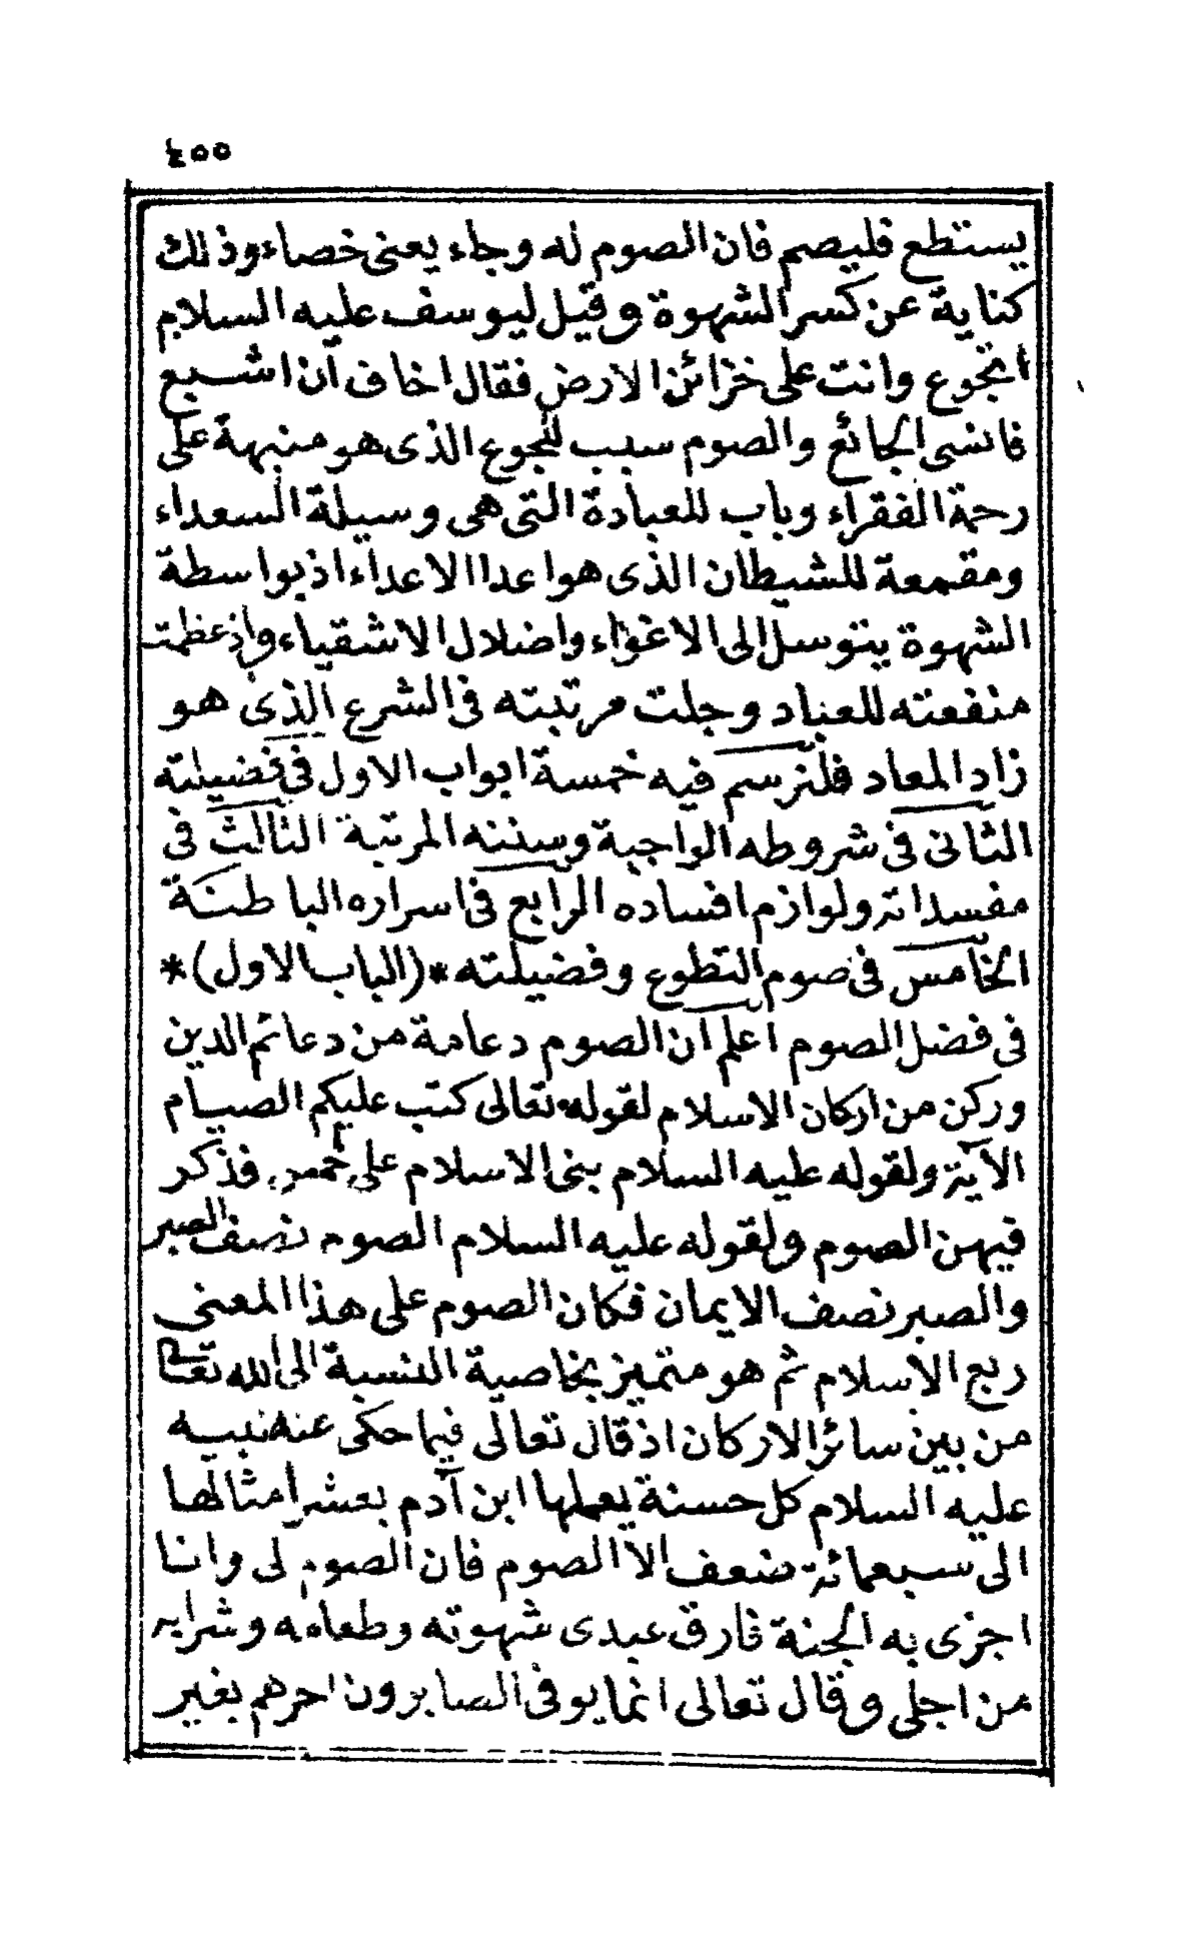 ٤٥٥
يستطع فليصم فان الصوم له وجاء يعنى خصاء وذلك
كناية عن كسر الشهوة وقيل ليوسف عليه السلام
أتجوع وانت على خزائن الارض فقال اخاف أن اشبع
فانسى الجائع والصوم سبب للجوع الذى هو منبهة على
رحمة الفقراء وباب للعبادة التى هى وسيلة السعداء
ومقمعة للشيطان الذى هو اعدا الاعداء اذ بواسطة
الشهوة يتوسل الى الاغواء واضلال الاشقياء واذ عظمت
منفعته للعباد وجلت مرتبته فى الشرع الذى هو
زاد المعاد فلنرسم فيه خمسة ابواب الاول فى فضيلته
الثانى فى شروطه الواجبة وسننه المرتبة الثالث فى
مفسداته ولوازم افساده الرابع فى اسراره الباطنة
الخامس فى صوم التطوع وفضيلته *(الباب الاول)*
فى فضل الصوم اعلم أن الصوم دعامة من دعائم الدين
وركن من اركان الاسلام لقوله تعالى كتب عليكم الصيام
الآية ولقوله عليه السلام بنى الاسلام على خمس فذكر
فيهن الصوم ولقوله عليه السلام الصوم نصف الصبر
والصبر نصف الايمان فكان الصوم على هذا المعنى
ربع الاسلام ثم هو متميز بخاصية النسبة الى الله تعالى
من بين سائر الاركان اذ قال تعالى فيما حكى عنه نبيه
عليه السلام كل حسنة يعملها ابن آدم بعشر امثالها
الى سبعمائة ضعف الا الصوم فان الصوم لى وانا
اجزى به الجنة فارق عبدى شهوته وطعامه وشرابه
من اجلى وقال تعالى انما يوفى الصابرون اجرهم بغير